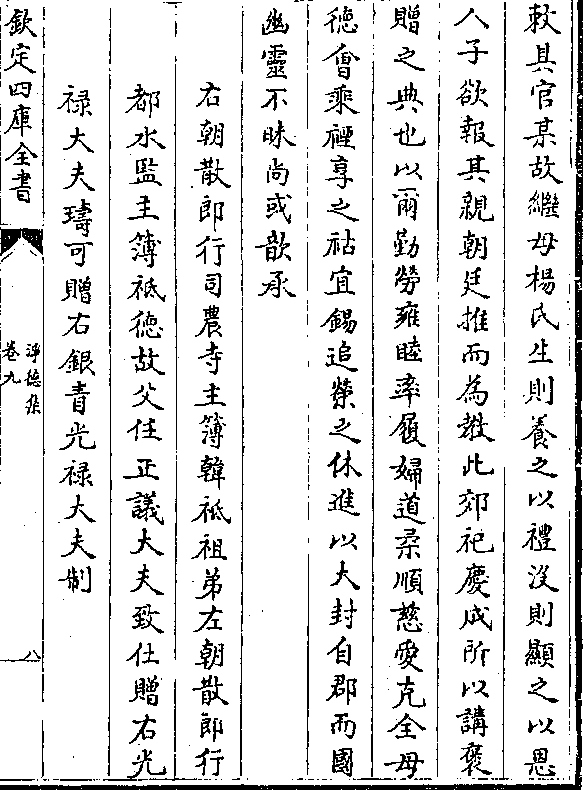 敕其官某故繼母楊氏生則養之以禮沒則顯之以恩
人子欲報其親朝廷推而為教此郊祀慶成所以講褒
贈之典也以爾勤勞雍睦率履婦道柔順慈愛克全母
徳會乘禋享之祜宜錫追榮之休進以大封自郡而國
幽靈不昧尚或歆承
右朝散郎行司農寺主簿韓祗祖弟左朝散郎行
都水監主簿祗德故父任正議大夫致仕贈右光
禄大夫璹可贈右銀青光禄大夫制
欽定四庫全書
淨德集
卷九
八